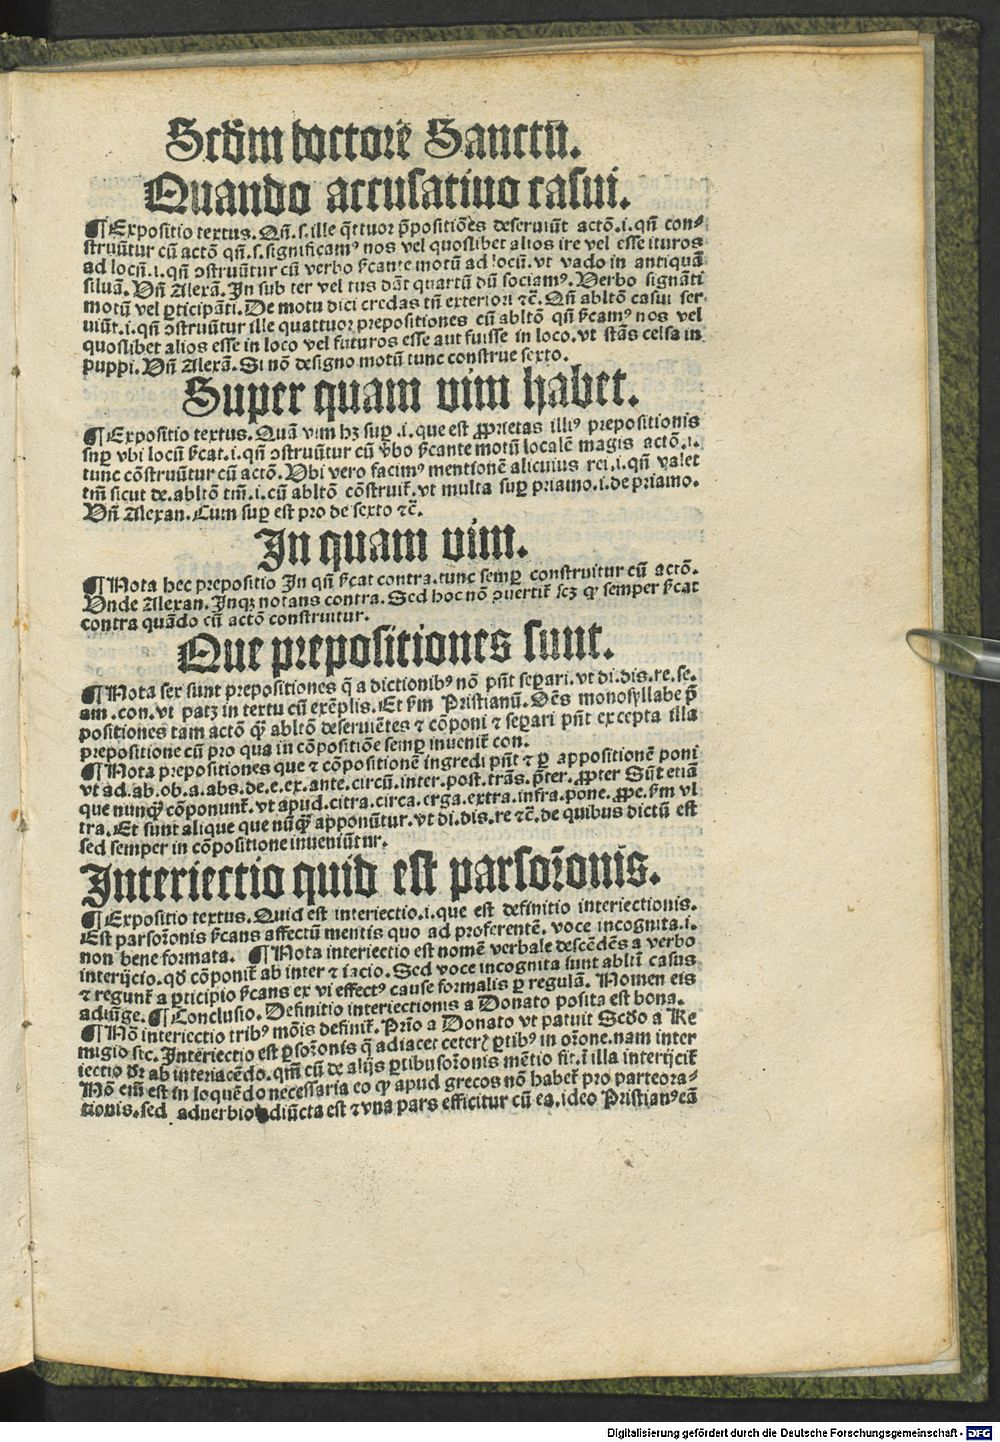 Scďm doctorē Sanctū.
Quando accusatiuo casui.
¶ Expositio textus. Qn̄. s. ille q̄ttuor p̄positiōes deseruiūt actō. i. qn̄ con⸗
struūtur cū actō qn̄. s. significamꝰ nos vel quoslibet alios ire vel esse ituros
ad locū. i. qn̄ ↄstruūtur cū verbo ſcante motū ad locū. vt vado in antiquā
siluā. Vn̄ Alexā. In sub ter vel tus dāt quartū dū sociamꝰ. Verbo signāti
motū vel ꝑticipāti. De motu dici credas tn̄ exteriori ⁊c̄. Qn̄ abltō casui ser⸗
uiūt. i. qn̄ ↄstruūtur ille quattuor prepositiones cū abltō qn̄ ſcamꝰ nos vel
quoslibet alios esse in loco vel futuros esse aut fuisse in loco. vt stās celsa in
puppi. Vn̄ Alexā. Si nō designo motū tunc construe sexto.
Super quam vim habet.
¶ Expositio textus. Quā vim hꝫ suꝑ. i. que est ꝓprietas illiꝰ prepositionis
suꝑ vbi locū ſcat. i. qn̄ ↄstruūtur cū v̄bo ſcante motū localē magis actō. i.
tunc cōstruūtur cū actō. Vbi vero facimꝰ mentionē alicuius rei. i. qn̄ valet
tm̄ sicut de. abltō tm̄. i. cū abltō cōstruit̄. vt multa suꝑ priamo. i. de priamo.
Vn̄ Alexan. Cum suꝑ est pro de sexto ⁊c̄.
In quam vim.
¶ Nota hec prepositio In qn̄ ſcat contra. tunc semꝑ construitur cū actō.
Vnde Alexan. Inqꝫ notans contra. Sed hoc nō ↄuertit̄ scꝫ ꝙ semper ſcat
contra quādo cū actō construitur.
Que prepositiones sunt.
¶ Nota sex sunt prepositiones q̄ a dictionibꝰ nō pn̄t seꝑari. vt di. dis. re. se.
am. con. vt patꝫ in textu cū exēplis. Et ſm Pristianū. Oēs monosyllabe p̄
positiones tam actō q̄ꝫ abltō deseruiētes ⁊ cōponi ⁊ seꝑari pn̄t excepta illa
prepositione cū pro qua in cōpositiōe semꝑ inuenit̄ con.
¶ Nota prepositiones que ⁊ cōpositionē ingredi pn̄t ⁊ ꝑ appositionē poni
vt ad. ab. ob. a. abs. de. e. ex. ante. circū. inter. post. trās. p̄ter. ꝓpter Sūt etiā
que nunq̄ꝫ cōponunt̄. vt apud. citra. circa. erga. extra. infra. pone. ꝓpe. ſm vl
tra. Et sunt alique que nūq̄ꝫ apponūtur. vt di. dis. re ⁊c̄. de quibus dictū est
sed semper in cōpositione inueniūtur.
Interiectio quid est parsor̄onis.
¶ Expositio textus. Quid est interiectio. i. que est definitio interiectionis.
Est parsor̄onis ſcans affectū mentis quo ad proferentē. voce incognita. i.
non bene formata. ¶ Nota interiectio est nomē verbale descēdēs a verbo
interijcio. qd̄ cōponit̄ ab inter ⁊ iacio. Sed voce incognita sunt abltī casus
⁊ regunt̄ a ꝑticipio ſcans ex vi effectꝰ cause formalis ꝑ regulā. Nomen eis
adiūge. ¶ Conclusio. Definitio interiectionis a Donato posita est bona.
¶ Nō interiectio tribꝰ mōis definit̄. Prīo a Donato vt patuit Scďo a Re
migio sic. Interiectio est ꝑsor̄onis q̄ adiacet ceterꝭ ꝑtibꝰ in or̄one. nam inter
iectio dr̄ ab interiacēdo. qm̄ cū de alijs ꝑtibusor̄onis mētio fit. ī illa interijcit̄
Nō em̄ est in loquēdo necessaria eo ꝙ apud grecos nō habet̄ pro parteora⸗
tionis. sed aduerbio diūcta est ⁊ vna pars efficitur cū ea. ideo Pristianꝰ eā
Digitalisierung gefördert durch die Deutsche Forschungsgemeinschaft - DFG